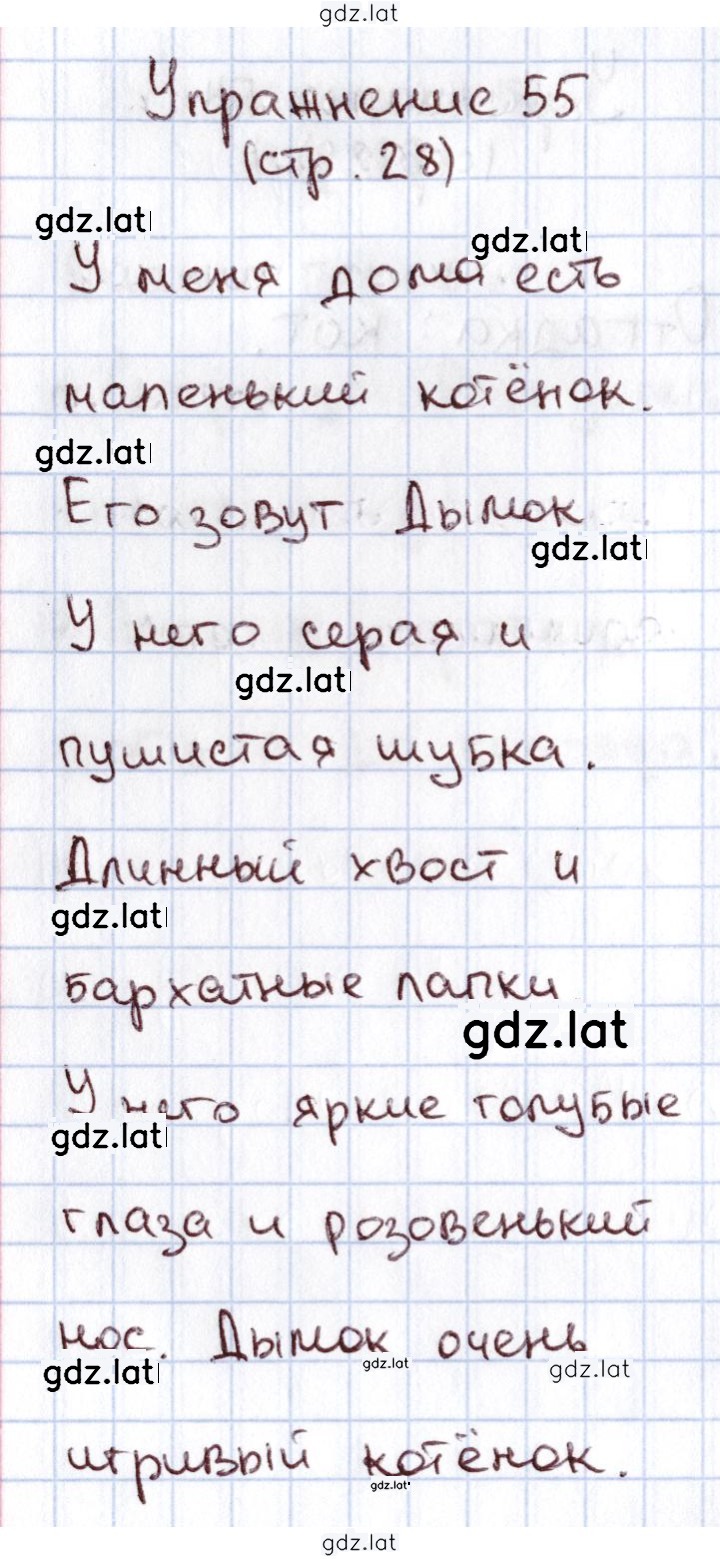 gdz.lat
Упражнение 55
(стр. 28)
gdz.lat
gdz.lat
У меня дома есть
маленький котёнок.
gdz.lat
Его зовут Дымок
gdz.lat
У него серая и
gdz.lat
пушистая шубка.
Длинный хвост и
gdz.lat
бархатные лапки
gdz.lat
У него яркие голубые
gdz.lat
глаза и розовенький
нос. Дымок очень
gdz.lat
gdz.lat
gdz.lat
игривый котёнок.
gdz.lat
gdz.lat